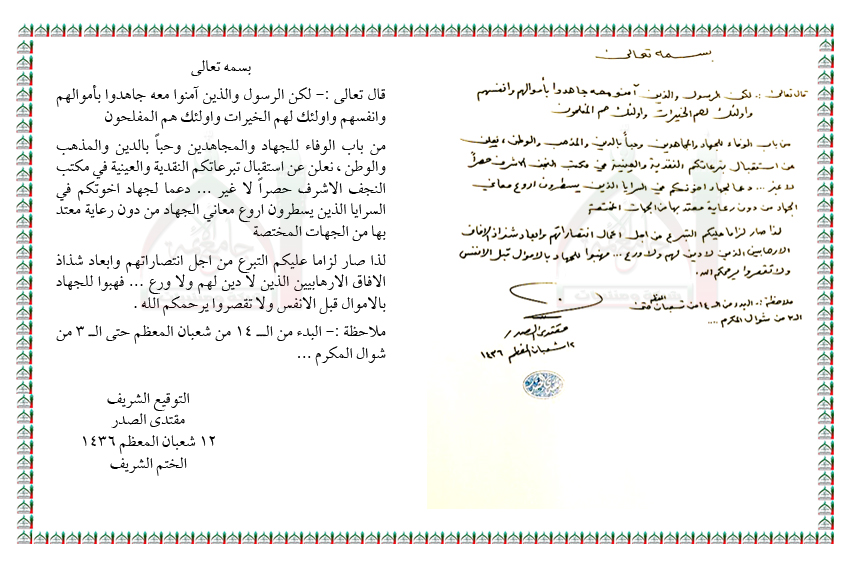 بسمه تعالى
قال تعالى :– لكن الرسول والذين آمنوا معه جاهدوا بأموالهم
وانفسهم واولئك لهم الخيرات واولئك هم المفلحون
من باب الوفاء للجهاد والمجاهدين وحباً بالدين والمذهب
والوطن ، نعلن عن استقبال تبرعاتكم النقدية والعينية في مكتب
النجف الاشرف حصراً لا غير ... دعما لجهاد اخوتكم في
السرايا الذين يسطرون اروع معاني الجهاد من دون رعاية معتد
بها من الجهات المختصة
لذا صار لزاما عليكم التبرع من اجل انتصاراتهم وابعاد شذاذ
الافاق الارهابيين الذين لا دين لهم ولا ورع ... فهبوا للجهاد
بالاموال قبل الانفس ولا تقصروا يرحمكم الله .
ملاحظة :– البدء من الـــ ١٤ من شعبان المعظم حتى الــ ٣ من
شوال المكرم ...
التوقيع الشريف
مقتدى الصدر
١٢ شعبان المعظم ١٤٣٦
الختم الشريف
بسمه تعالى
قال تعالى :. لكن الرسول والذين آمنو معه جاهدوا بأموالهم وانفسهم
واولئك لهم الخيرات واولئك هم المفلحون
من باب الوفاء للجهاد والمجاهدين وحباً بالدين والمذهب والوطن ، نعلن
عن استقبال تبرعاتكم النقدية والعينية في مكتب النجف الاشرف حصراً
لا غير ... دعما لجهاد اخوتكم في السرايا الذين يسطرون اروع معاني
الجهاد من دون رعاية معتد بها من الجهات المختصة
لذا صار لزاما عليكم التبرع من اجل اكمال انتصاراتهم وابعاد شذاذ الافاق
الارهابيين الذين لا دين لهم ولا ورع ... فهبوا للجهاد بالاموال قبل الانفس
ولا تقصروا يرحمكم الله.
ملاحظة :. البدء من الـ ١٤ من شعبان المعظم حتى
الـ ٣ من شوال المكرم ....
مقتدى الصدر
١٢ شعبان المعظم ١٤٣٦